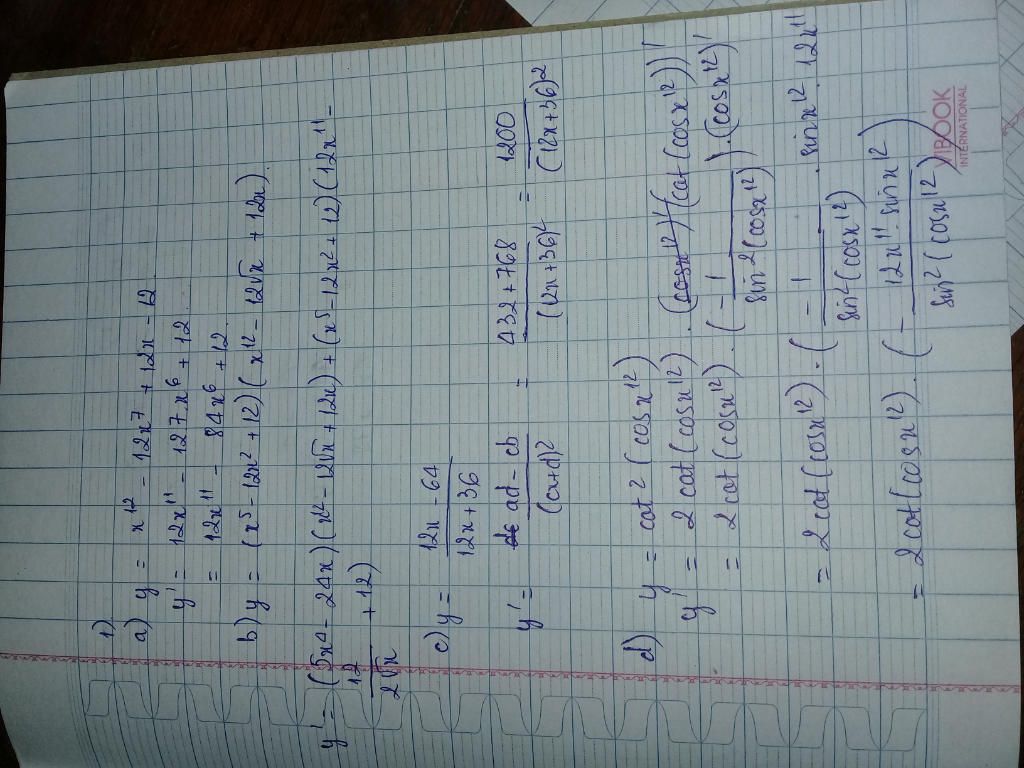 1)
a) y = x¹² - 12x⁷ + 12x - 12
y' = 12x¹¹ - 12 7 x⁶ + 12
= 12x¹¹ - 84x⁶ + 12
b) y = (x⁵ - 12x² + 12)(x¹² - 12√x + 12x)
y' = (5x⁴ - 24x)(x¹² - 12√x + 12x) + (x⁵ - 12x² + 12)(12x¹¹ -
12/2√x + 12)
c) y = 12x - 64/12x + 36
y' = ad - cb/(cx+d)² = 432 + 768/(12x+36)² = 1200/(12x+36)²
d) y = cot²(cosx¹²)
y' = 2 cot(cosx¹²) . (cot(cosx¹²))'
= 2 cot(cosx¹²) . (- 1/sin²(cosx¹²)) . (cosx¹²)'
= 2 cot(cosx¹²) . (- 1/sin²(cosx¹²) . sinx¹² . 12x¹¹
= 2cot(cosx¹²) . (- 12x¹¹ . sinx¹²/sin²(cosx¹²))
VIBOOK
INTERNATIONAL